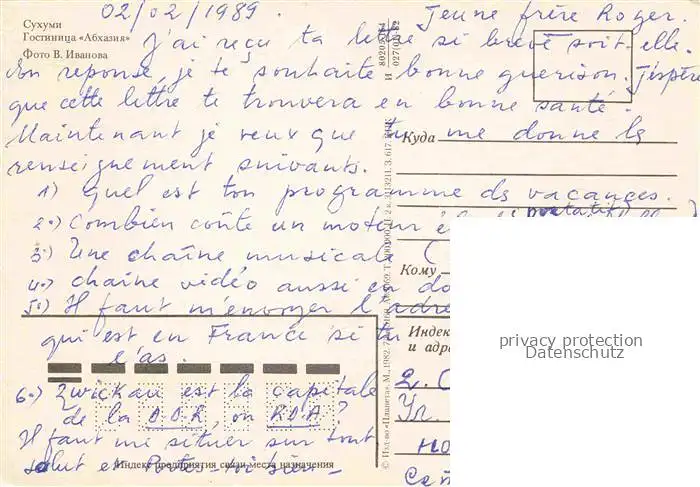 Сухуми
Гостиница «Абхазия»
Фото В. Иванова
02/02/1989.
Jeune frère Roger.
J'ai reçu ta lettre si brève soit-elle.
En reponse, je te souhaite bonne guerison. J'éspère
que cette lettre te trouvera en bonne santé.
Maintenant je veux que tu me donne les
renseignement suivants.
1) quel est ton programme ds vacances.
2.) Combien coûte un moteur
portatif
3) Une chaîne musicale (
4.) chaîne vidéo aussi en do
5.) Il faut m'envoyer l'adre
qui est en France si tu
l'as.
6.) Zwickau est la capitale
de la D.D.R, ou RDA?
Il faut me situer sur tout
salut et Portes-toi bien-
Куда
Кому
Индек
и адр
Индекс предприятия связи места назначения
© Изд-во «Планета», М., 1982.
privacy protection
Datenschutz